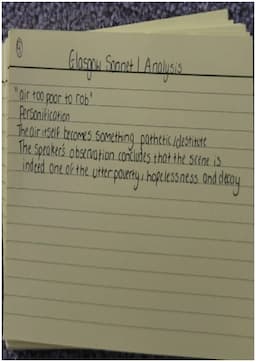 Glasgow Sonnet 1 Analysis
"air too poor to rob"
Personification
The air itself becomes something pathetic/destitute
The speaker's observation concludes that the scene is
indeed one of the utter poverty, hopelessness and decay